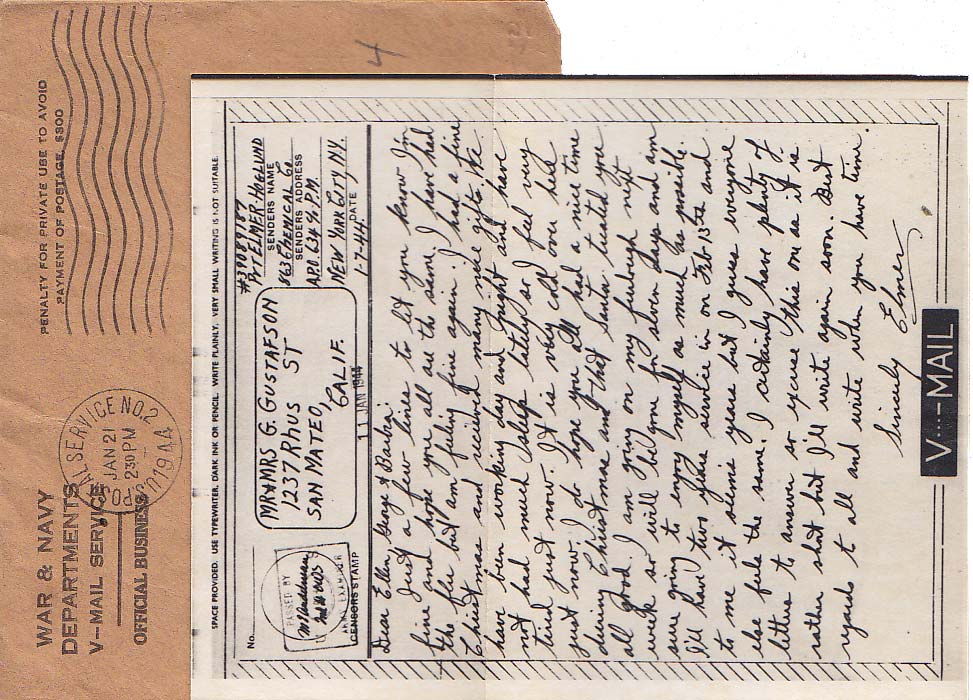 WAR & NAVY
DEPARTMENTS
V-MAIL SERVICE
OFFICIAL BUSINESS
POSTAL SERVICE NO. 2
JAN 21
230 PM
1944
PENALTY FOR PRIVATE USE TO AVOID
PAYMENT OF POSTAGE, $300
4
SPACE PROVIDED. USE TYPEWRITER, DARK INK OR PENCIL. WRITE PLAINLY. VERY SMALL WRITING IS NOT SUITABLE.
No.
PASSED BY
ARMY EXAMINER
CENSORS STAMP
MR & MRS G. GUSTAFSON
1237 RHUS ST
SAN MATEO,
CALIF.
11 JAN 1944
#39089187
PVT ELMER HOGLUND
SENDERS NAME
863 CHEMICAL Co
SENDERS ADDRESS
A.P.O. 634 % P.M.
NEW YORK CITY N.Y.
1-7-44
DATE
Dear Ellen, George & Barbra'
Just a few lines to let you know I'm
fine and hope you all are the same. I have had
the flu but am feeling fine again. I had a fine
Christmas and received many nice gifts. We
have been working day and night and have
not had much sleep lately so I feel very
tired just now. It is very cold over here
just now. I do hope you all had a nice time
during Christmas and that Santa treated you
all good. I am going on my furlough next
week so will be gone for seven days and am
sure going to enjoy myself as much as possible.
I'll have two years service in on Feb 13th and
to me it seems years but I guess everyone
else feels the same. I certainly have plenty of
letters to answer so excuse this one as it is
rather short but I'll write again soon. Best
regards to all and write when you have time.
Sincerely
Elmer
V···—MAIL